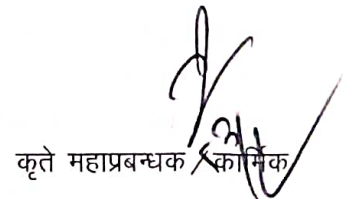 कृते महाप्रबन्धक / कार्मिक